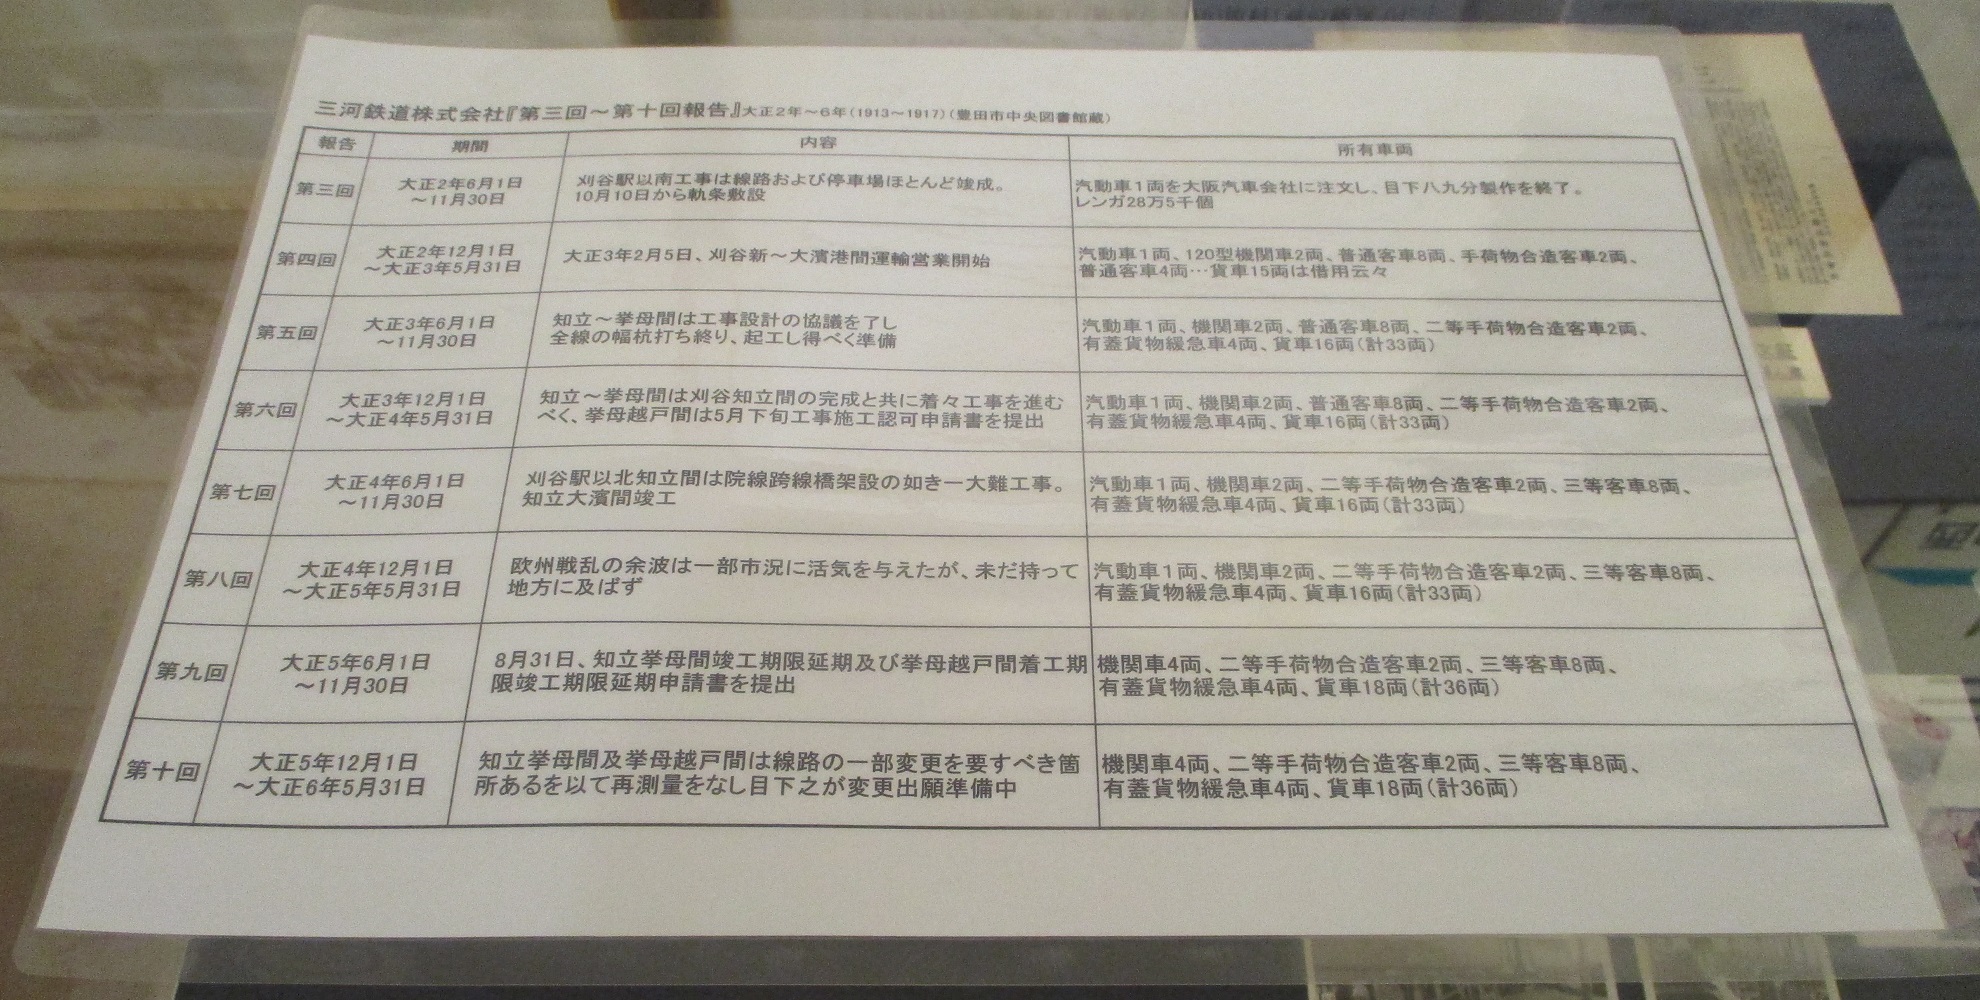 三河鉄道株式会社『第三回～第十回報告』大正2年～6年(1913～1917)(豊田市中央図書館蔵)
報告 期間 内容 所有車両
第三回
大正2年6月1日
～11月30日
刈谷駅以南工事は線路および停車場ほとんど竣成。
10月10日から軌条敷設
汽動車1両を大阪汽車会社に注文し、目下八九分製作を終了。
レンガ28万5千個
第四回
大正2年12月1日
～大正3年5月31日
大正3年2月5日、刈谷新～大濱港間運輸営業開始
汽動車1両、120型機関車2両、普通客車8両、手荷物合造客車2両、
普通客車4両…貨車15両は借用云々
第五回
大正3年6月1日
～11月30日
知立～挙母間は工事設計の協議を了し
全線の幅杭打ち終り、起工し得べく準備
汽動車1両、機関車2両、普通客車8両、二等手荷物合造客車2両、
有蓋貨物緩急車4両、貨車16両(計33両)
第六回
大正3年12月1日
～大正4年5月31日
知立～挙母間は刈谷知立間の完成と共に着々工事を進む
べく、挙母越戸間は5月下旬工事施工認可申請書を提出
汽動車1両、機関車2両、普通客車8両、二等手荷物合造客車2両、
有蓋貨物緩急車4両、貨車16両(計33両)
第七回
大正4年6月1日
～11月30日
刈谷駅以北知立間は院線跨線橋架設の如き一大難工事。
知立大濱間竣工
汽動車1両、機関車2両、二等手荷物合造客車2両、三等客車8両、
有蓋貨物緩急車4両、貨車16両(計33両)
第八回
大正4年12月1日
～大正5年5月31日
欧州戦乱の余波は一部市況に活気を与えたが、未だ持って
地方に及ばず
汽動車1両、機関車2両、二等手荷物合造客車2両、三等客車8両、
有蓋貨物緩急車4両、貨車16両(計33両)
第九回
大正5年6月1日
～11月30日
8月31日、知立挙母間竣工期限延期及び挙母越戸間着工期
限竣工期限延期申請書を提出
機関車4両、二等手荷物合造客車2両、三等客車8両、
有蓋貨物緩急車4両、貨車18両(計36両)
第十回
大正5年12月1日
～大正6年5月31日
知立挙母間及挙母越戸間は線路の一部変更を要すべき箇
所あるを以て再測量をなし目下之が変更出願準備中
機関車4両、二等手荷物合造客車2両、三等客車8両、
有蓋貨物緩急車4両、貨車18両(計36両)